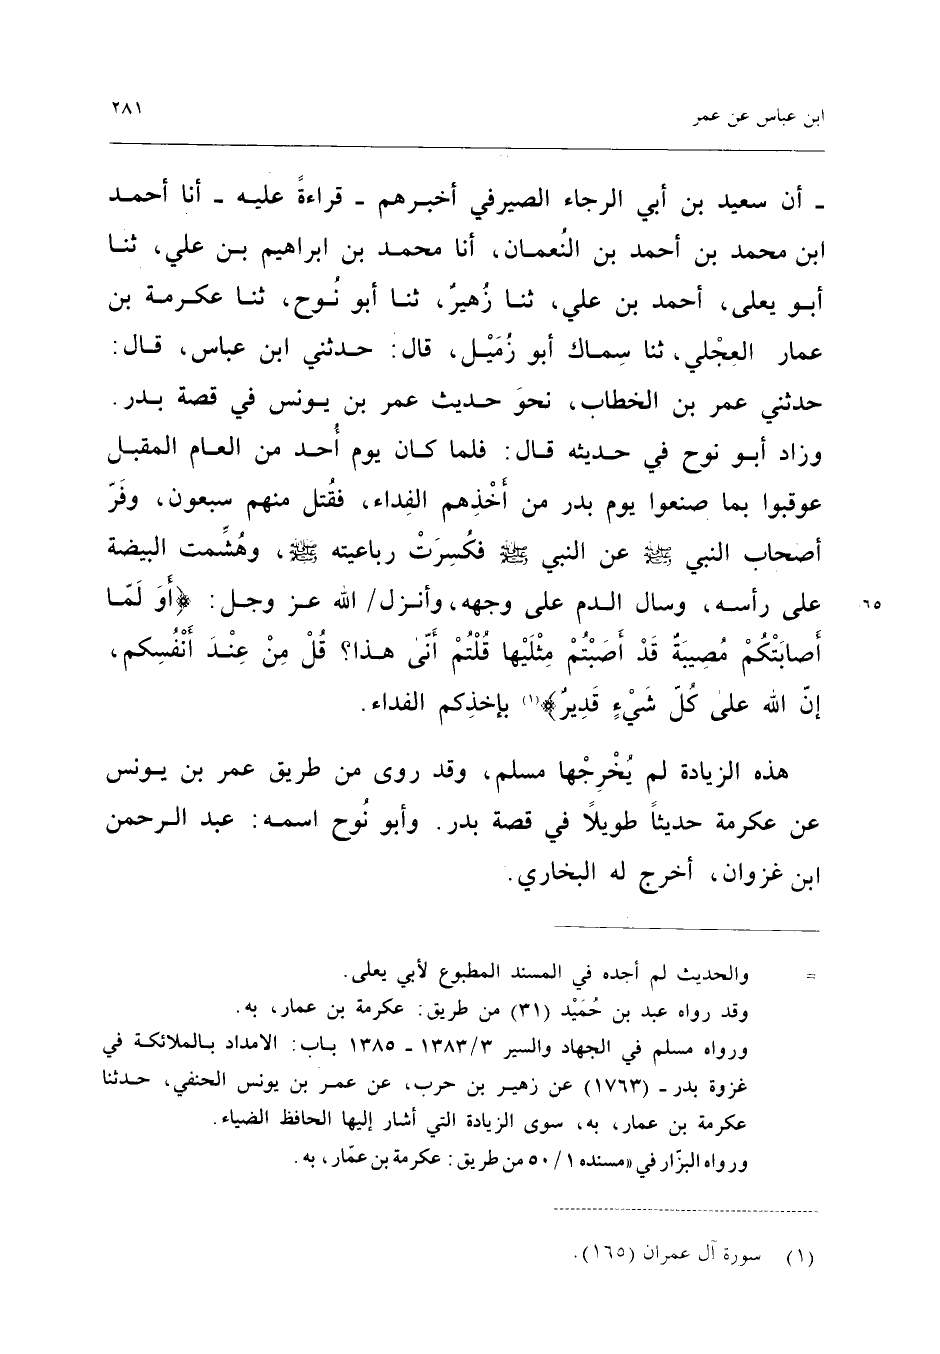 ابن عباس عن عمر
٢٨١
ـ أن سعيد بن أبي الرجاء الصيرفي أخبرهم ـ قراءةً عليه ـ أنا أحمد
ابن محمد بن أحمد بن النُعمان، أنا محمد بن ابراهيم بن علي، ثنا
أبو يعلى، أحمد بن علي، ثنا زُهيرٌ، ثنا أبو نُوح، ثنا عكرمة بن
عمار العِجْلي، ثنا سِماك أبو زُمَيْل، قال: حدثني ابن عباس، قال:
حدثني عمر بن الخطاب، نحوَ حديث عمر بن يونس في قصة بدر.
وزاد أبو نوح في حديثه قال: فلما كان يوم أُحد من العام المقبل
عوقبوا بما صنعوا يوم بدر من أَخْذِهم الفِداء، فقُتل منهم سبعون، وفَرّ
أصحاب النبي ﷺ عن النبي ﷺ فكُسِرَتْ رباعيته ﷺ، وهُشِّمت البيضة
على رأسه، وسال الدم على وجهه، وأنزل/ الله عز وجل: ﴿أَوَ لَمّا
٦٥
أَصابَتْكُمْ مُصِيبَةٌ قَدْ أَصَبْتُمْ مِثْلَيْها قُلْتُمْ أَنّىٰ هذا؟ قُلْ مِنْ عِنْدَ أَنْفُسِكم،
إنّ الله علىٰ كُلّ شَيْءٍ قَدِيرٌ﴾(١) بإخذِكم الفداء.
هذه الزيادة لم يُخْرِجْها مسلم، وقد روى من طريق عمر بن يونس
عن عكرمة حديثاً طويلاً في قصة بدر. وأبو نُوح اسمه: عبد الرحمن
ابن غزوان، أخرج له البخاري.
= والحديث لم أجده في المسند المطبوع لأبي يعلى.
وقد رواه عبد بن حُمَيْد (٣١) من طريق: عكرمة بن عمار، به.
ورواه مسلم في الجهاد والسير ١٣٨٣/٣ ـ ١٣٨٥ باب: الامداد بالملائكة في
غزوة بدر ـ (١٧٦٣) عن زهير بن حرب، عن عمر بن يونس الحنفي، حدثنا
عكرمة بن عمار، به، سوى الزيادة التي أشار إليها الحافظ الضياء.
ورواه البزّار في «مسنده ١/ ٥٠ من طريق: عكرمة بن عمّار، به.
(١) سورة آل عمران (١٦٥).